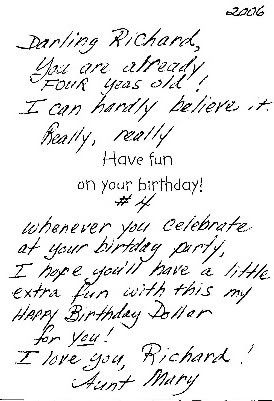 2006
Darling Richard,
You are already
FOUR yeas old!
I can hardly believe it.
Really, really
Have fun
on your birthday!
#4
whenever you celebrate
at your birtday party,
I hope you'll have a little
extra fun with this my
Happy Birthday Dollar
for you!
I love you, Richard!
Aunt Mary